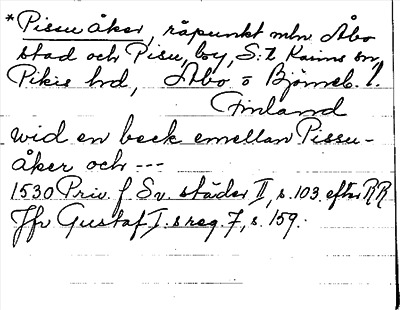 *Pissu åker, råpunkt mln Åbo
stad och Pisu, by, S:t Karins sn,
Pikis hd, Åbo o Björneb. l.
Finland
wid en beck emellan Pissu-
åker och ---
1530 Priv. f Sv. städer II, s. 103. efter RR
Jfr Gustaf I:s reg. 7, s. 159.